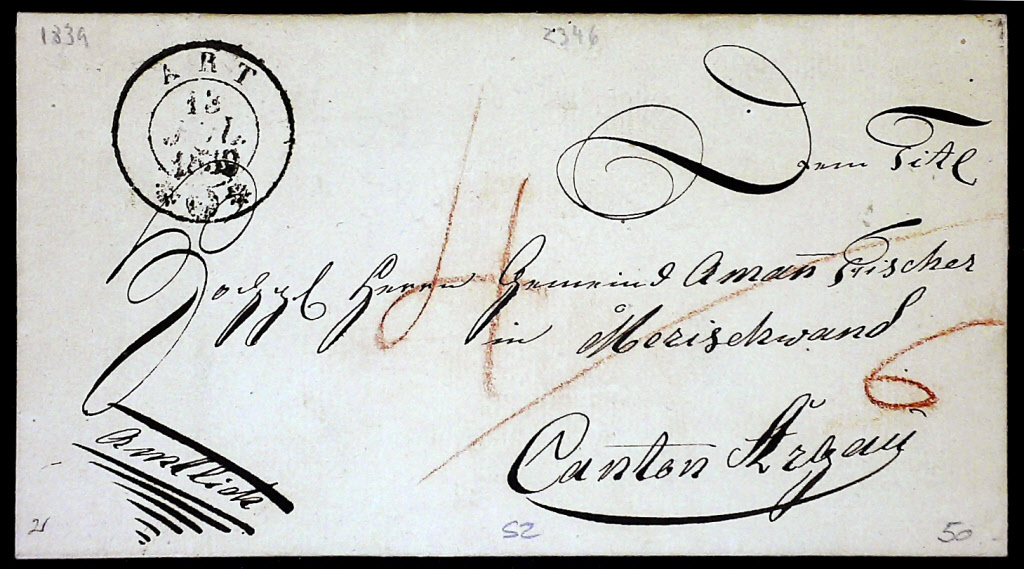 1839
2346
ART
13
JUL
1839
Dem Titl
Hochgl Herrn Gemeind Aman̄ Fischer
in Merischwand
4
6
Canton Argau
Amtlich
21
SZ
50